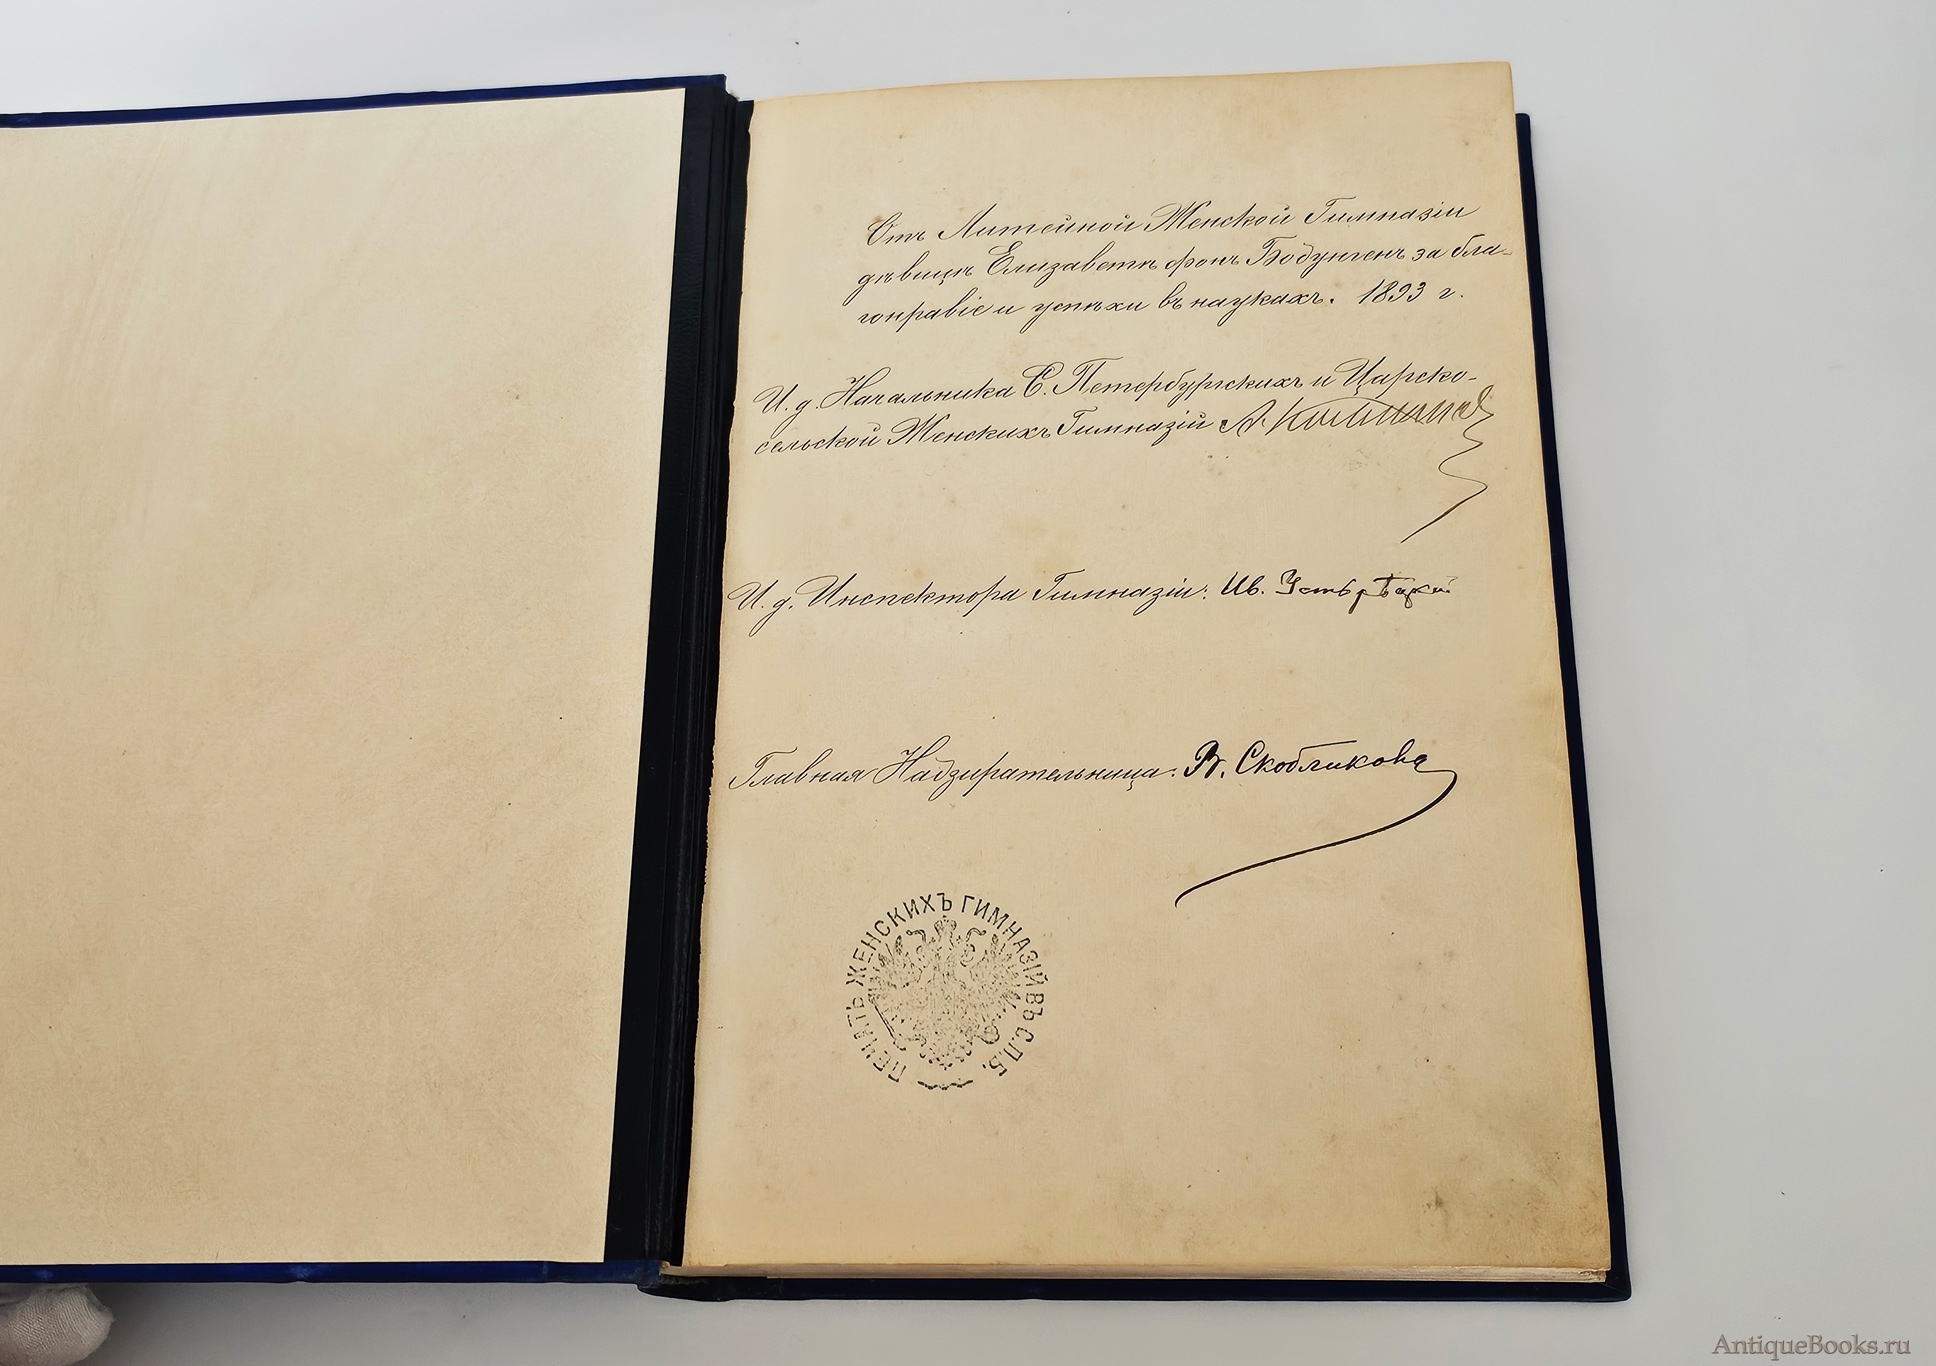 Отъ Литейной Женской Гимназіи
дѣвицѣ Елизаветѣ фонъ Бодунгенъ за бла-
гонравіе и успѣхи въ наукахъ. 1893 г.
И. д. Начальника С. Петербургскихъ и Царско-
сельской Женскихъ Гимназій
И. д. Инспектора Гимназіи: Ив.
Главная Надзирательница: В. Скобликова
ПЕЧАТЬ ЖЕНСКИХЪ ГИМНАЗІЙ ВЪ С.П.Б.
AntiqueBooks.ru